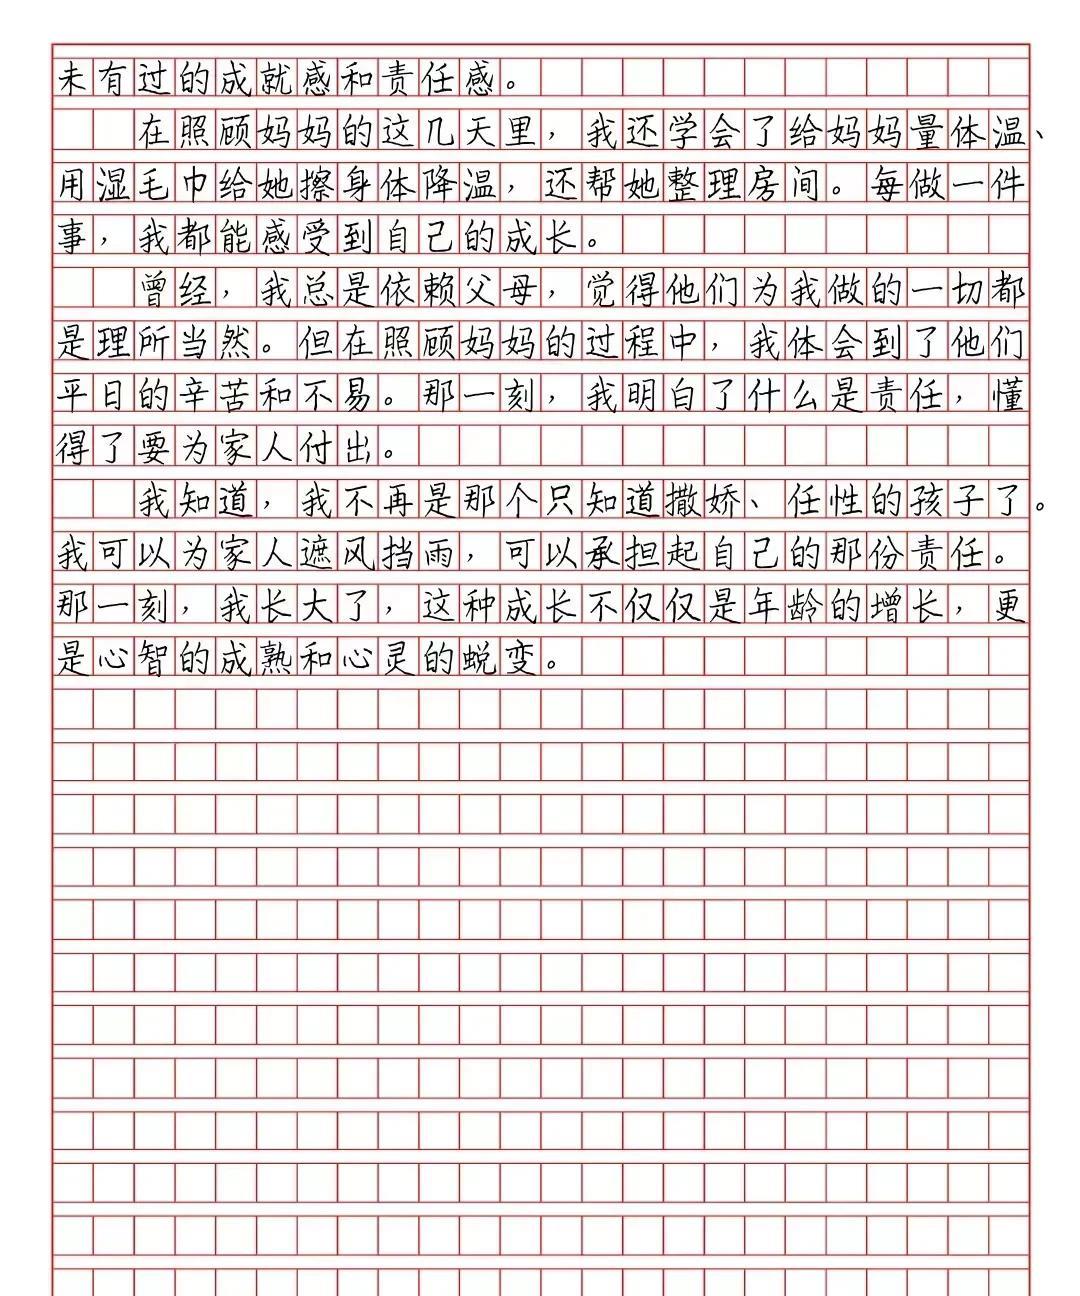 未有过的成就感和责任感。
在照顾妈妈的这几天里，我还学会了给妈妈量体温、
用湿毛巾给她擦身体降温，还帮她整理房间。每做一件
事，我都能感受到自己的成长。
曾经，我总是依赖父母，觉得他们为我做的一切都
是理所当然。但在照顾妈妈的过程中，我体会到了他们
平日的辛苦和不易。那一刻，我明白了什么是责任，懂
得了要为家人付出。
我知道，我不再是那个只知道撒娇、任性的孩子了。
我可以为家人遮风挡雨，可以承担起自己的那份责任。
那一刻，我长大了，这种成长不仅仅是年龄的增长，更
是心智的成熟和心灵的蜕变。